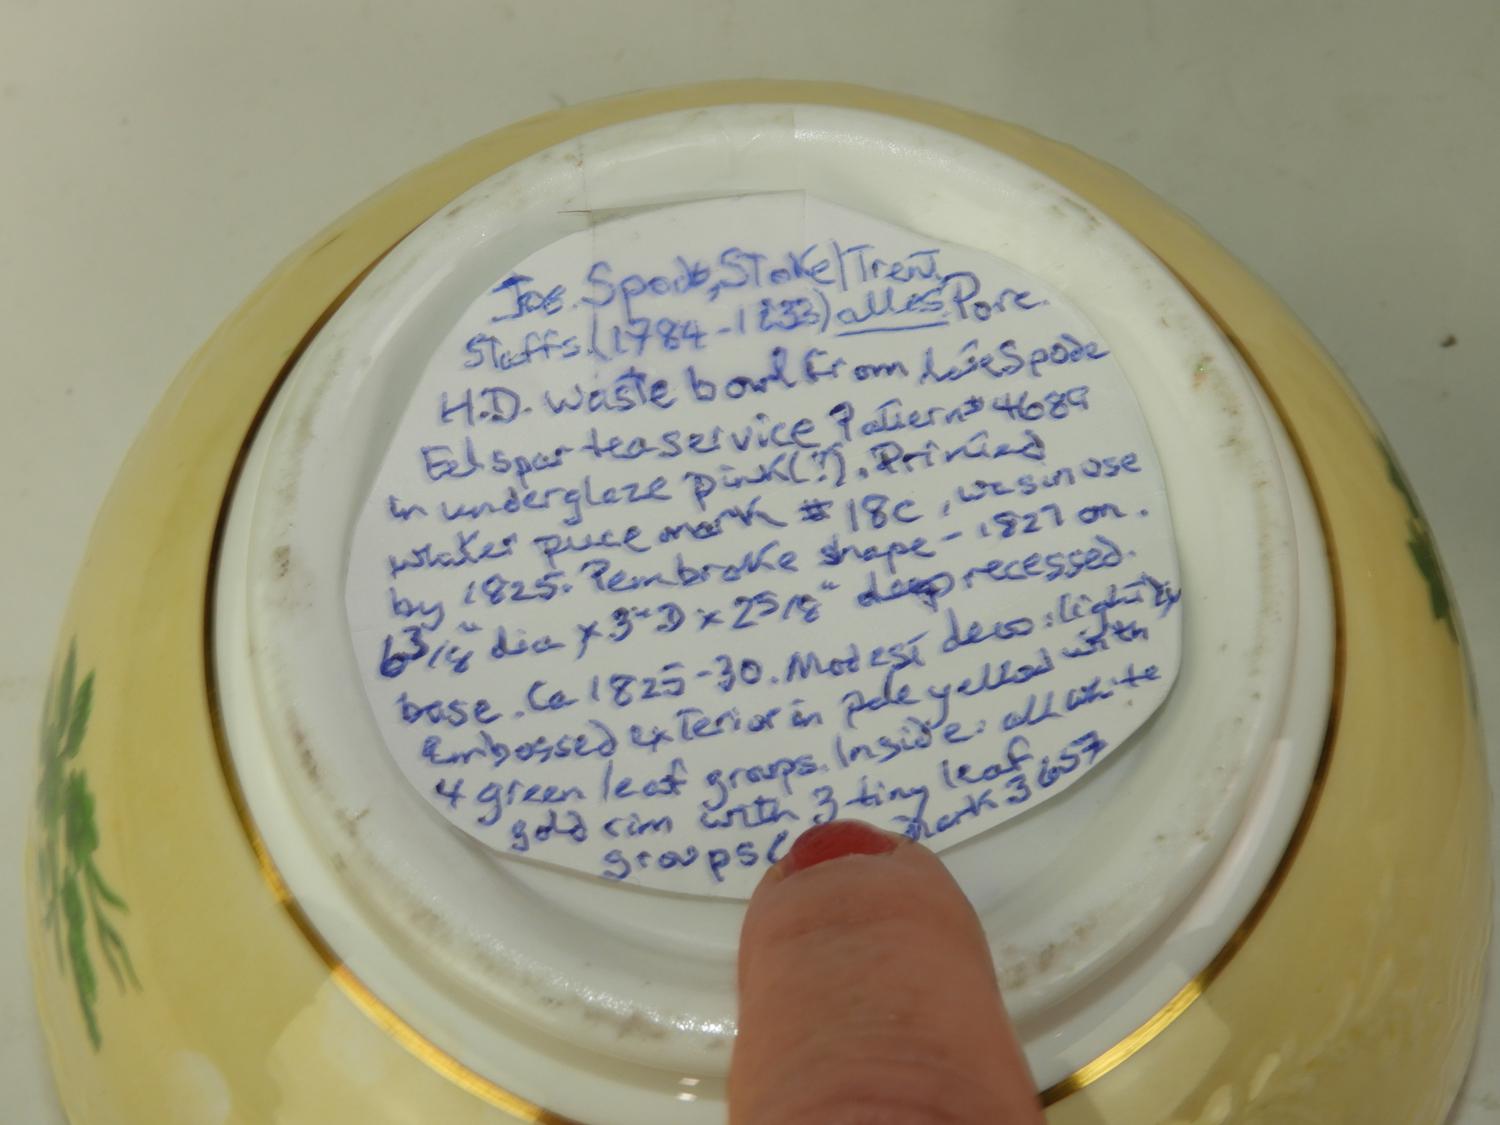 Jos. Spode, Stoke/Trent,
Staffs. (1784-1833) Porc.
H.D. waste bowl from late Spode
Felspar teaservice Pattern # 4689
in underglaze pink(?). Printed
maker puce mark # 18c, was in use
by 1825. Pembroke shape - 1827 on.
6 3/8" dia x 3" D x 2 5/8" deep recessed.
base. Ca 1825-30. Modest deco: lightly
Embossed exterior in pale yellow with
4 green leaf groups. Inside: all white
gold rim with 3 tiny leaf
groups ( mark 3657